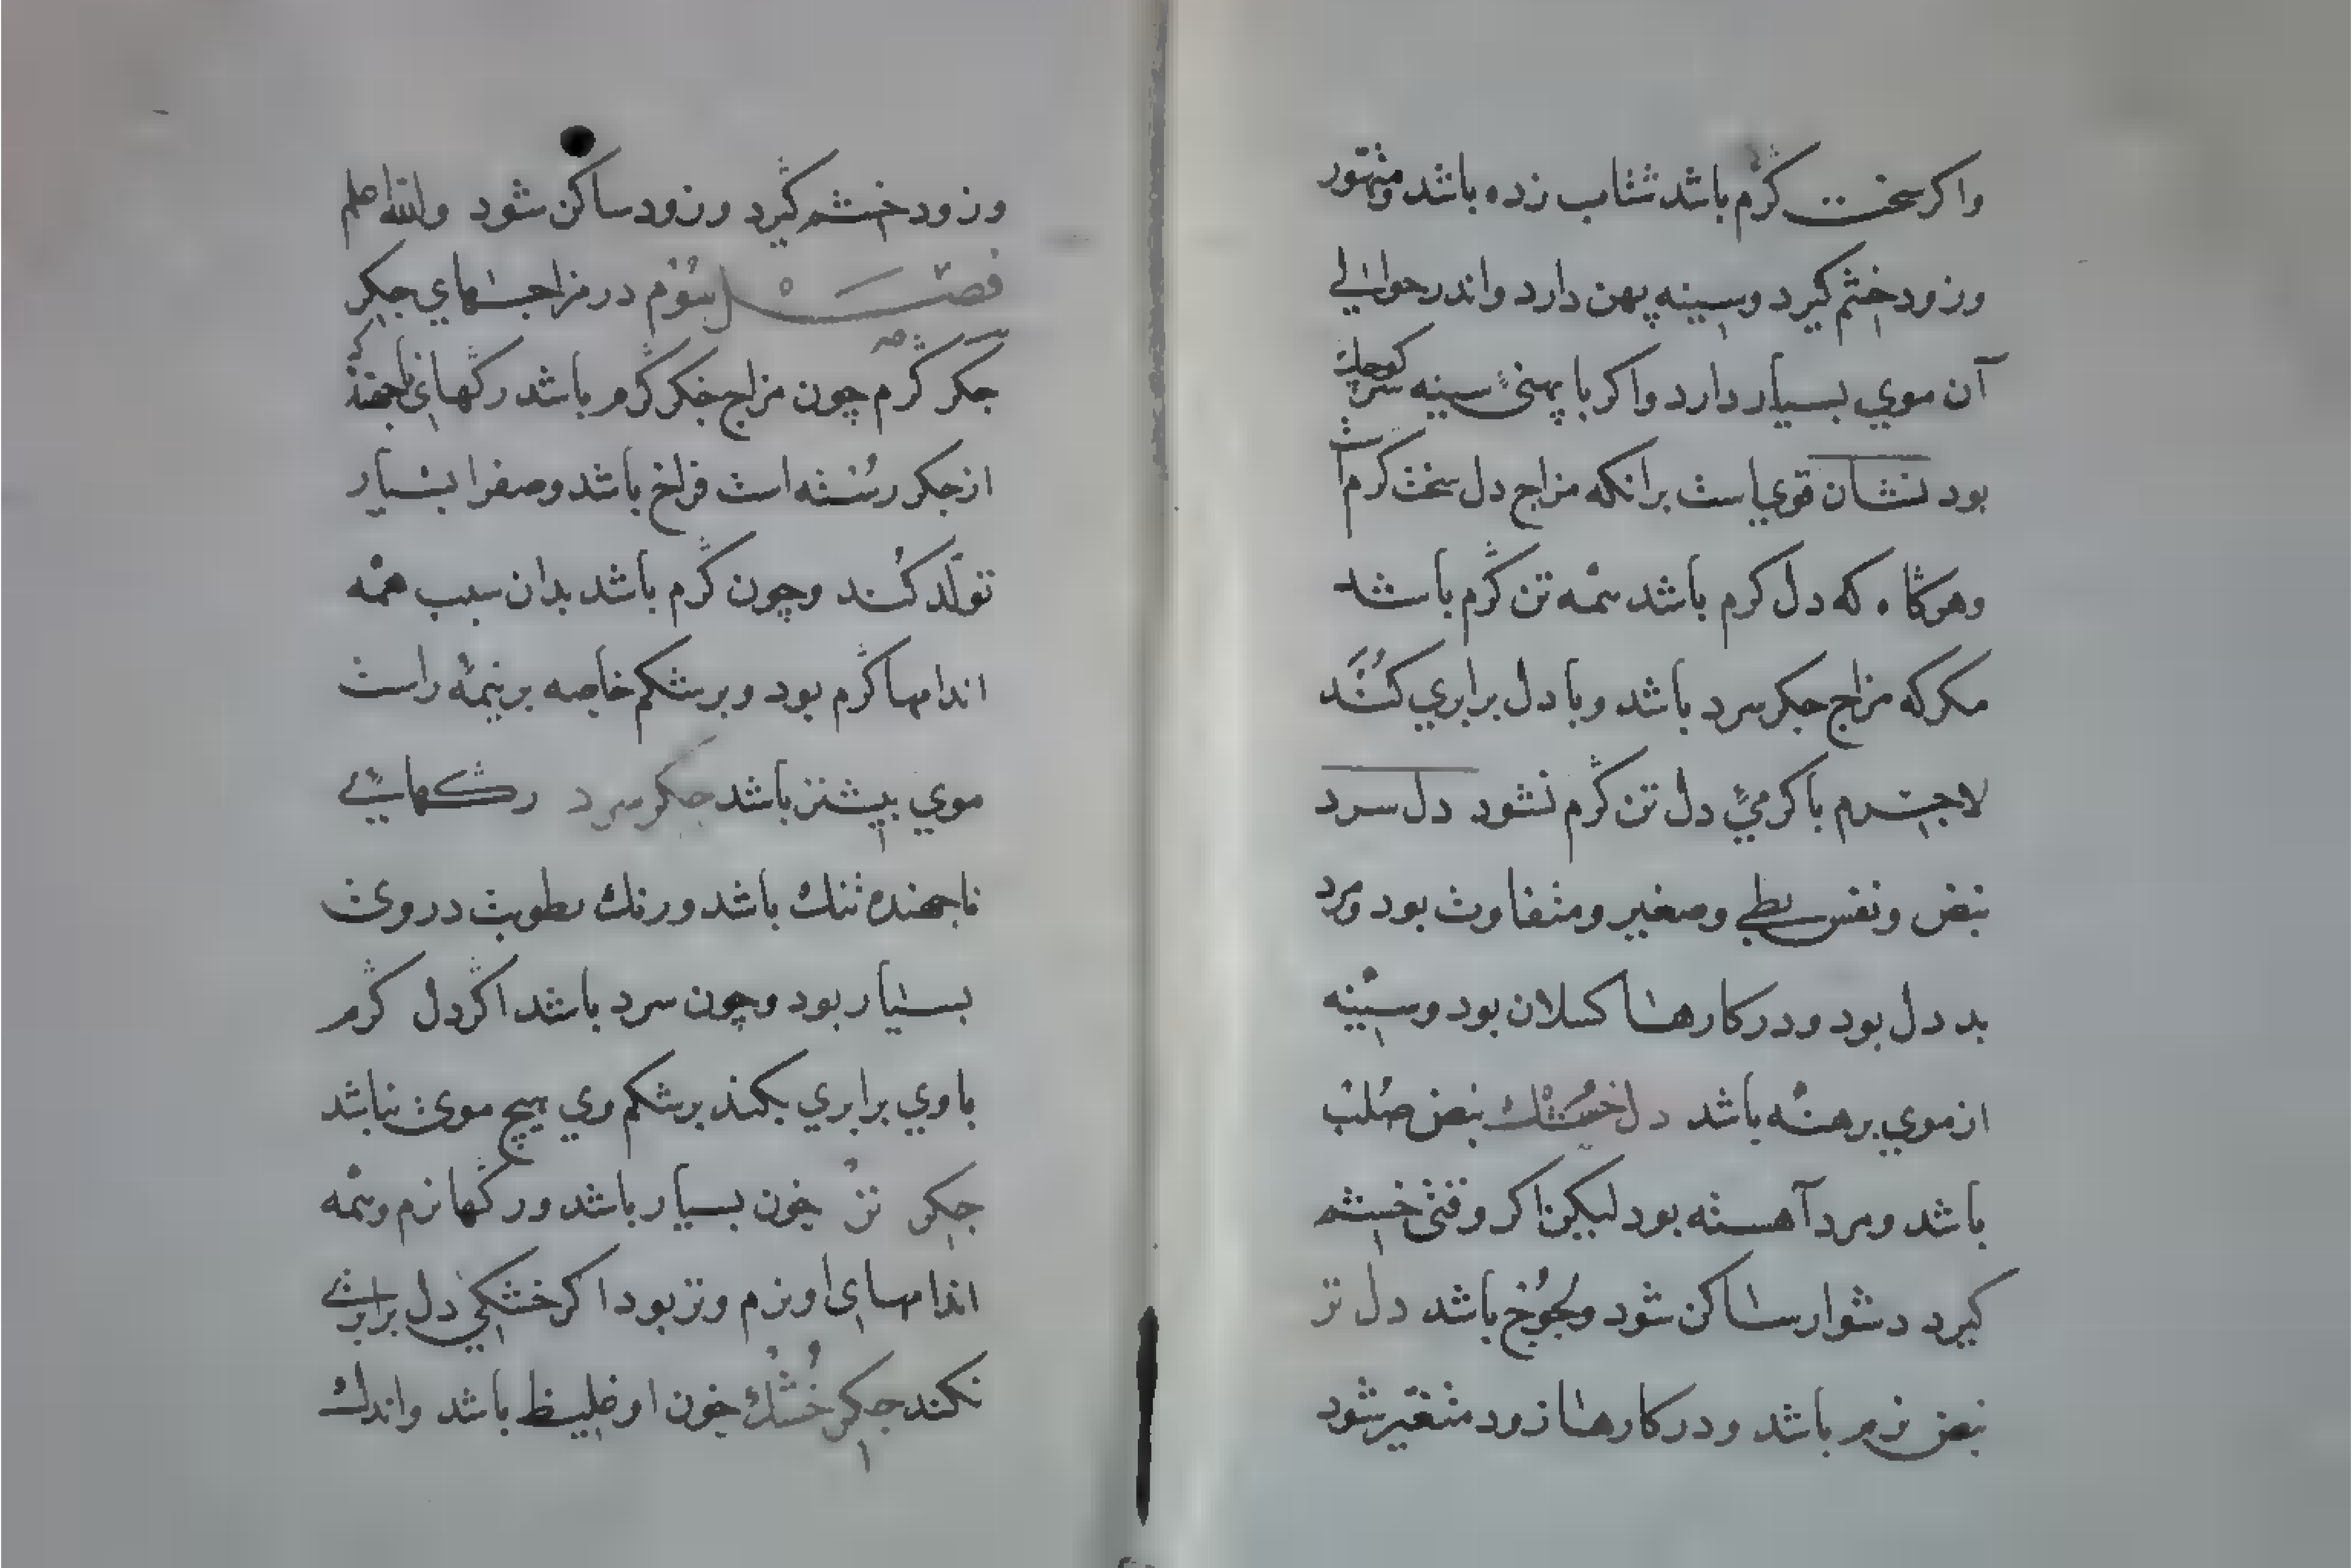 واکر سخت گرم باشد شتاب زده باشد ومتهور
وزود خشم گیرد وسینه پهن دارد واندر حوالی
آن موي بسیار دارد واکر با پهنی سینه سر کوچک
بود نشان قوي است برانکه مزاج دل سخت گرم است
وهرگاه که دل گرم باشد همه تن گرم باشد
مکر که مزاج جکر سرد باشد وبا دل برابري کند
لاجرم با کرمي دل تن گرم نشود دل سرد
نبض ونفس بطي وصغیر ومتفاوت بود ومرد
بد دل بود ودر کارها کسلان بود وسینه
از موي برهنه باشد دل خشک نبض صلب
باشد ومرد آهسته بود لیکن اکر وقتی خشم
کیرد دشوار ساکن شود ولجوج باشد دل تر
نبض نرم باشد ودر کارها زود متغیر شود
وزود خشم گیرد وزود ساکن شود والله اعلم
فصل سوم در مزاجهای جکر
جکر گرم چون مزاج جکر گرم باشد رگهای ناجهنده که
از جکر رسته است فراخ باشد وصفرا بسیار
تولد کند وچون گرم باشد بدان سبب همه
اندامها گرم بود وبر شکم خاصه بر نیمه راست
موي بیشتر باشد جکر سرد رگهای
ناجهنده تنک باشد ورنک رطوبت در وی
بسیار بود وچون سرد باشد اکر دل گرم
با وي برابري نکند بر شکم وي هیچ موی نباشد
جکر تر خون بسیار باشد ورگها نرم وهمه
اندامهای او نرم وتر بود اکر خشکي دل برابری
نکند جکر خشک خون او غلیظ باشد واندک